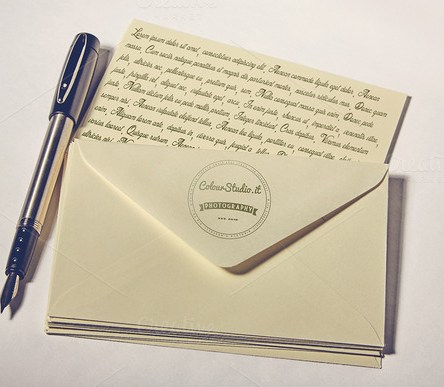 Lorem ipsum dolor sit amet, consectetuer adipiscing elit. Aenean commodo ligula eget dolor. Aenean
massa. Cum sociis natoque penatibus et magnis dis parturient montes, nascetur ridiculus mus. Donec quam
felis, ultricies nec, pellentesque eu, pretium quis, sem. Nulla consequat massa quis enim. Donec
justo, fringilla vel, aliquet nec, vulputate eget, arcu. In enim justo, rhoncus ut, imperdiet a, venenatis vitae,
justo. Nullam dictum felis eu pede mollis pretium. Integer tincidunt. Cras dapibus. Vivamus elementum
semper nisi. Aenean vulputate eleifend tellus. Aenean leo ligula, porttitor eu, consequat vitae,
enim. Aliquam lorem ante, dapibus in, viverra quis, feugiat a,
varius laoreet. Quisque rutrum. Aenean
ultricies nisi.
ColourStudio.it
PHOTOGRAPHY